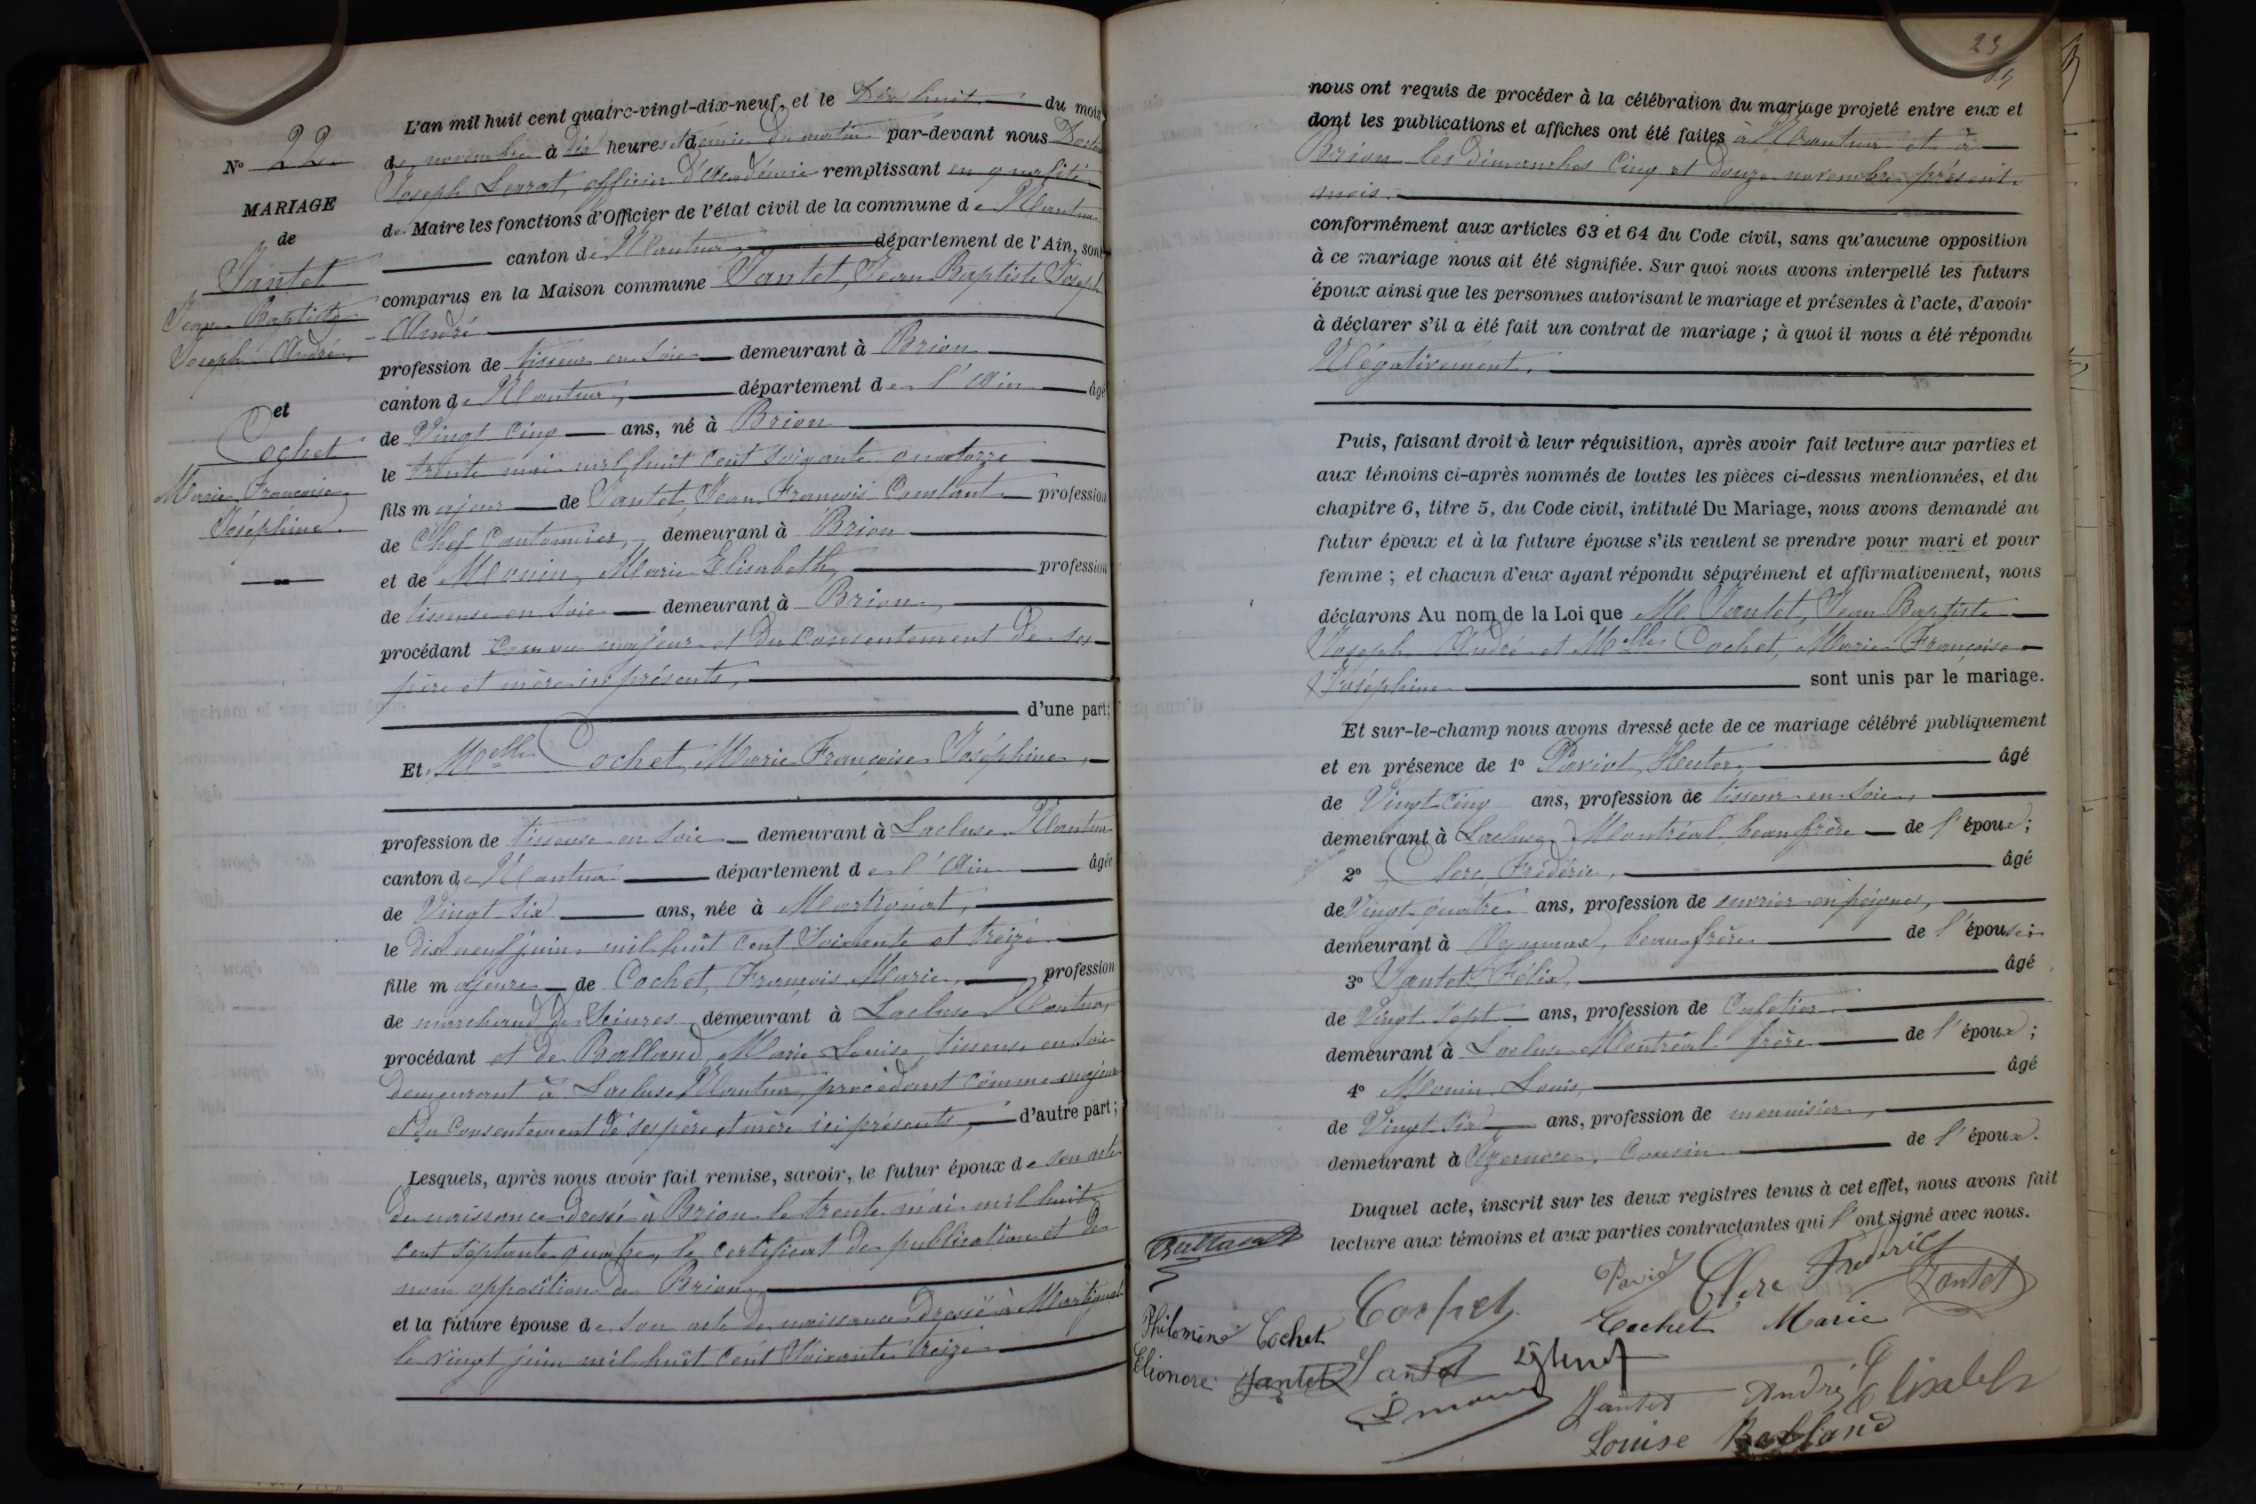 N° 22
MARIAGE
de
Jantet
Jean Baptiste
Joseph André,
et
Cochet
Marie Françoise
Joséphine.
L'an mil huit cent quatre-vingt-dix-neuf, et le Dix huit du mois
de novembre à dix heures et demie du matin par-devant nous Docteur
Joseph officier d'Académie remplissant en qualité
de Maire les fonctions d'Officier de l'état civil de la commune de Nantua
canton de Nantua département de l'Ain, sont
comparus en la Maison commune Jantet, Jean Baptiste Joseph
André
profession de tisseur en soie demeurant à Brion
canton de Nantua, département de l'Ain âgé
de Vingt cinq ans, né à Brion
le trente mai mil huit cent soixante quatorze
fils majeur de Jantet, Jean François Constant profession
de Chef Cantonnier, demeurant à Brion
et de Monin, Marie Elisabeth, profession
de tisseuse en soie demeurant à Brion,
procédant comme majeur et du consentement de ses
père et mère ici présents,
d'une part;
Et Melle Cochet, Marie Françoise Joséphine,
profession de tisseuse en soie demeurant à Lacluse Nantua
canton de Nantua département de l'Ain âgée
de Vingt six ans, née à Martignat,
le dix neuf juin mil huit cent soixante et treize
fille majeure de Cochet, François Marie, profession
de marchand de Sciures demeurant à Lacluse Nantua,
procédant et de Balland, Marie Louise, tisseuse en soie
demeurant à Lacluse, Nantua, procédant comme majeure
et du consentement de ses père et mère ici présents, d'autre part;
Lesquels, après nous avoir fait remise, savoir, le futur époux de son acte
de naissance dressé à Brion le trente mai mil huit
cent septante quatre, le certificat de publication et de
non opposition de Brion,
et la future épouse de son acte de naissance dressé à Martignat
le vingt juin mil huit cent soixante treize
23
nous ont requis de procéder à la célébration du mariage projeté entre eux et
dont les publications et affiches ont été faites à Nantua et à
Brion les dimanches cinq et douze novembre présent
mois.
conformément aux articles 63 et 64 du Code civil, sans qu'aucune opposition
à ce mariage nous ait été signifiée. Sur quoi nous avons interpellé les futurs
époux ainsi que les personnes autorisant le mariage et présentes à l'acte, d'avoir
à déclarer s'il a été fait un contrat de mariage ; à quoi il nous a été répondu
Négativement.
Puis, faisant droit à leur réquisition, après avoir fait lecture aux parties et
aux témoins ci-après nommés de toutes les pièces ci-dessus mentionnées, et du
chapitre 6, titre 5, du Code civil, intitulé Du Mariage, nous avons demandé au
futur époux et à la future épouse s'ils veulent se prendre pour mari et pour
femme ; et chacun d'eux ayant répondu séparément et affirmativement, nous
déclarons Au nom de la Loi que Mr Jantet, Jean Baptiste
Joseph André et Melle Cochet, Marie Françoise
Joséphine sont unis par le mariage.
Et sur-le-champ nous avons dressé acte de ce mariage célébré publiquement
et en présence de 1° Pariot, Hector, âgé
de Vingt cinq ans, profession de tisseur en soie,
demeurant à Lacluse, Montréal, beau frère de l'époux;
2° Clerc, Frédéric, âgé
de Vingt quatre ans, profession de ouvrier en peignes,
demeurant à Oyonnax, beau frère de l'épouse;
3° Jantet, Félix, âgé
de Vingt sept ans, profession de Cafetier
demeurant à Lacluse Montréal frère de l'époux;
4° Monin, Louis, âgé
de Vingt six ans, profession de menuisier,
demeurant à Izernore, cousin de l'époux.
Duquel acte, inscrit sur les deux registres tenus à cet effet, nous avons fait
lecture aux témoins et aux parties contractantes qui l'ont signé avec nous.
Balland
Pariot Clerc Frédéric
Cochet Jantet
Philomène Cochet Cochet Marie
Elionore Jantet Jantet
L monin Jantet André Elisabeth
Louise Balland